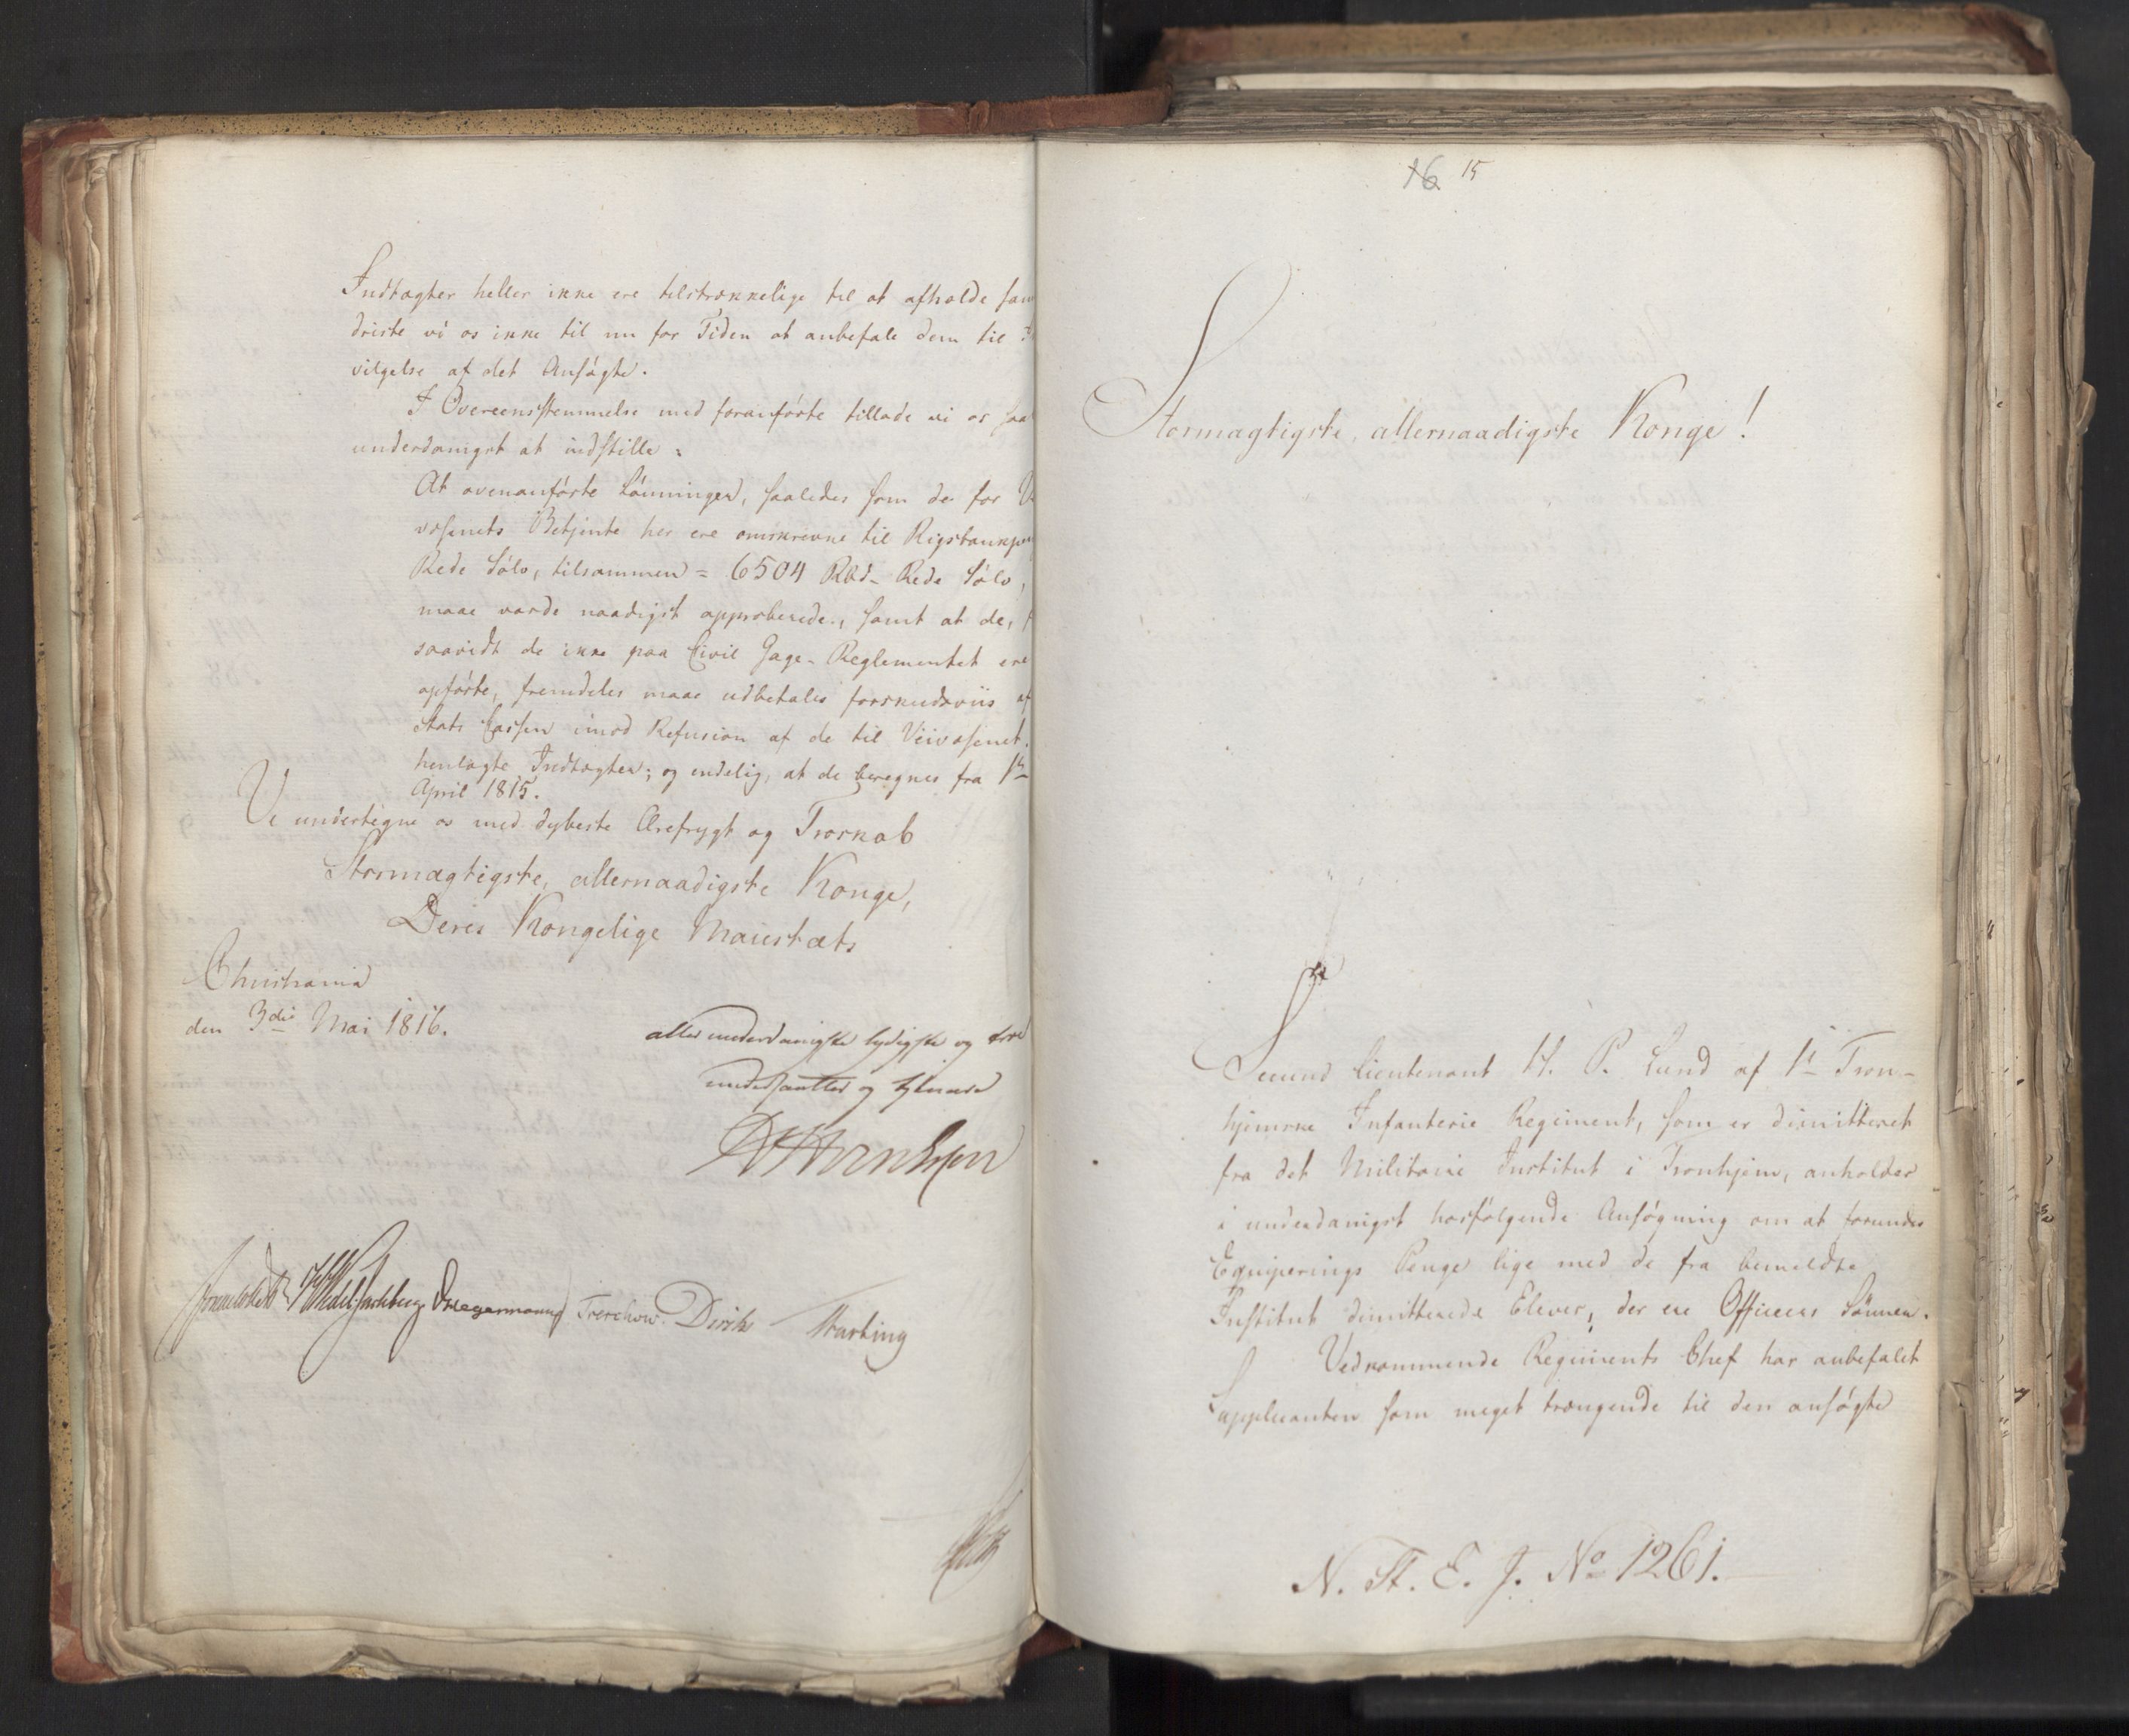 Indtægter heller ikke ere tilstrækkelige til at afholde
driste vi os ikke til nu for Tiden at anbefale dem til
vilgelse af det Ansøgte.
I Overeensstemmelse med foranførte tillade vi os saa
underdanigst at indstille:
At ovenanførte Lønninger, saaledes som de for
væsenets Betjente her ere omskrevne til Rigsbankpen
Rede Sølv, tilsammen = 6504 Rbd. Rede Sølv,
maae vorde naadigst approberede, samt at de,
saavidt de ikke paa Civil Gage-Reglementet ere
opførte, fremdeles maae udbetales forskudsviis af
Stats Cassen imod Refusion af de til Veivæsenet
henlagte Indtægter; og endelig, at de beregnes fra 1te
April 1815.
Vi undertegne os med dybeste Ærefrygt og Troskab
Stormægtigste, allernaadigste Konge,
Deres Kongelige Maiestæts
Christiania
den 3die Mai 1816.
allerunderdanigste lydigste og troe
undersaatter og tjenere
Wedel Jarlsberg Treschow Diriks
16 15
Stormægtigste, allernaadigste Konge!
Secund Lieutenant H. P. Lund af 1ste Tron-
hjemske Infanterie Regiment, som er dimitteret
fra det Militaire Institut i Tronhjem, anholder
i underdanigst hosfølgende Ansøgning om at forundes
Equiperings Penge lige med de fra bemeldte
Institut dimitterede Elever, der ere Officiers Sønner.
Vedkommende Regiments Chef har anbefalet
Supplicanten som meget trængende til den ansøgte
N. St. E. J. No 1261.